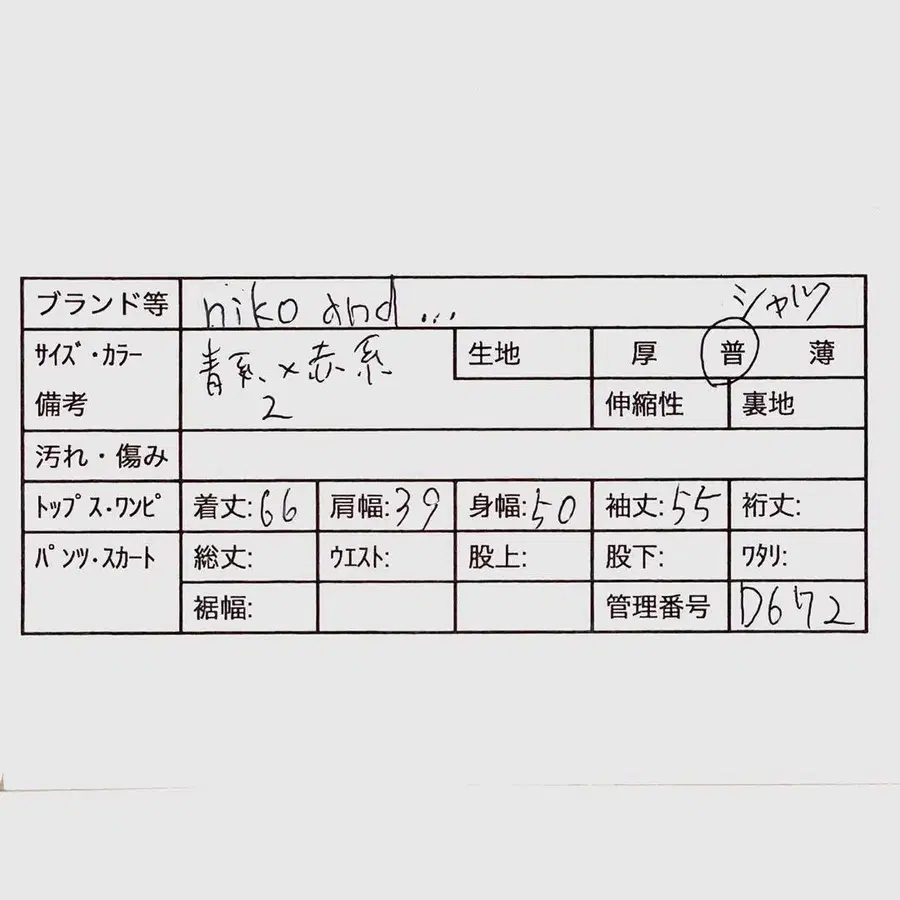 ブランド等 niko and ... シャツ
サイズ・カラー 青系×赤系 生地 厚 普 薄
備考 2 伸縮性 裏地
汚れ・傷み
トップス・ワンピ 着丈:66 肩幅:39 身幅:50 袖丈:55 裄丈:
パンツ・スカート 総丈: ウエスト: 股上: 股下: ワタリ:
裾幅: 管理番号 D672